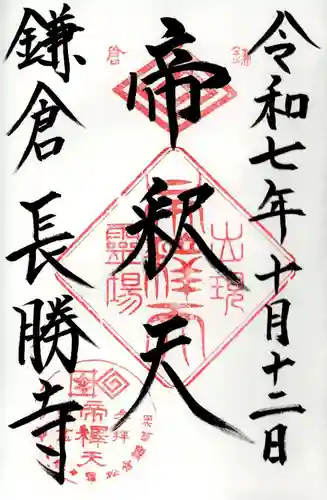 令和七年十月十二日
鎌倉
帝釈天
出現
靈場
帝釋天
鎌倉長勝寺